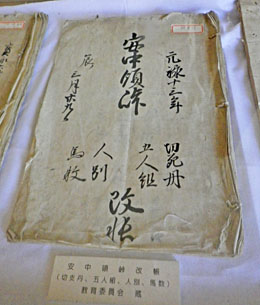 元禄十三年
切死丹
五人組
安中領峠
人別
改帳
馬数
辰三月廿九日
安中領峠改帳
(切支丹、五人組、人別、馬数)
教育委員会 蔵